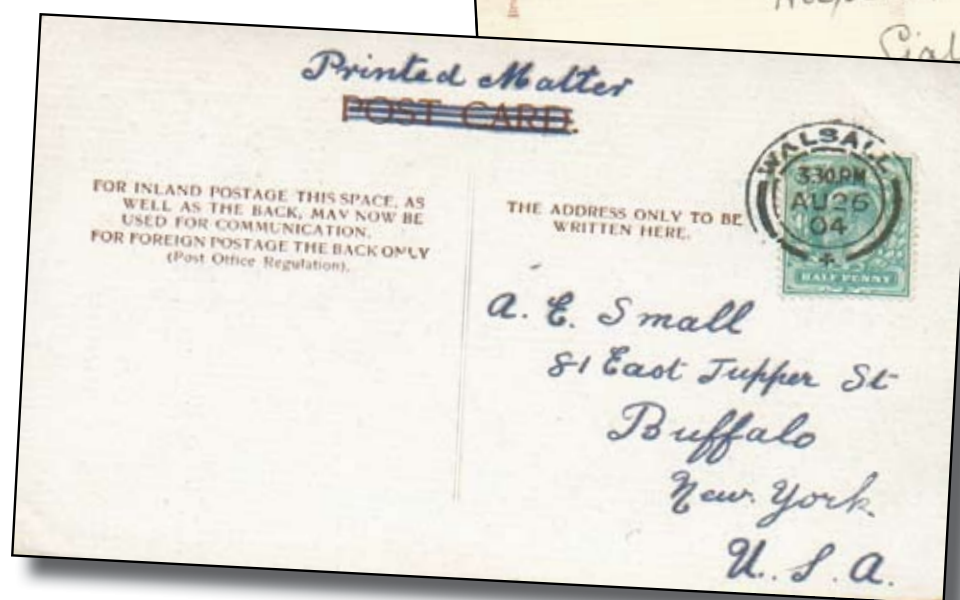 Printed Matter
POST CARD.
FOR INLAND POSTAGE THIS SPACE, AS
WELL AS THE BACK, MAY NOW BE
USED FOR COMMUNICATION.
FOR FOREIGN POSTAGE THE BACK ONLY
(Post Office Regulation).
THE ADDRESS ONLY TO BE
WRITTEN HERE.
WALSALL
3.30 PM
AU 26
04
HALF PENNY
A. E. Small
81 East Tupper St
Buffalo
New York
U.S.A.